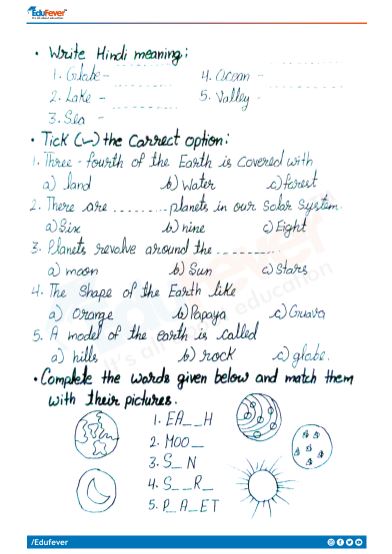 EduFever
It's all about education
• Write Hindi meaning:
1. Globe - 4. Ocean -
2. Lake - 5. Valley -
3. Sea -
• Tick (✓) the Correct option:
1. Three-fourth of the Earth is Covered with
a) land b) Water c) forest
2. There are ......... planets in our Solar System.
a) Six b) nine c) Eight
3. Planets revolve around the ..........
a) moon b) Sun c) Stars
4. The Shape of the Earth like
a) Orange b) Papaya c) Guava
5. A model of the earth is called
a) hills b) rock c) globe.
• Complete the words given below and match them
with their pictures.
1. EA__H
2. MOO_
3. S_N
4. S__R_
5. P_A_ET
/Edufever